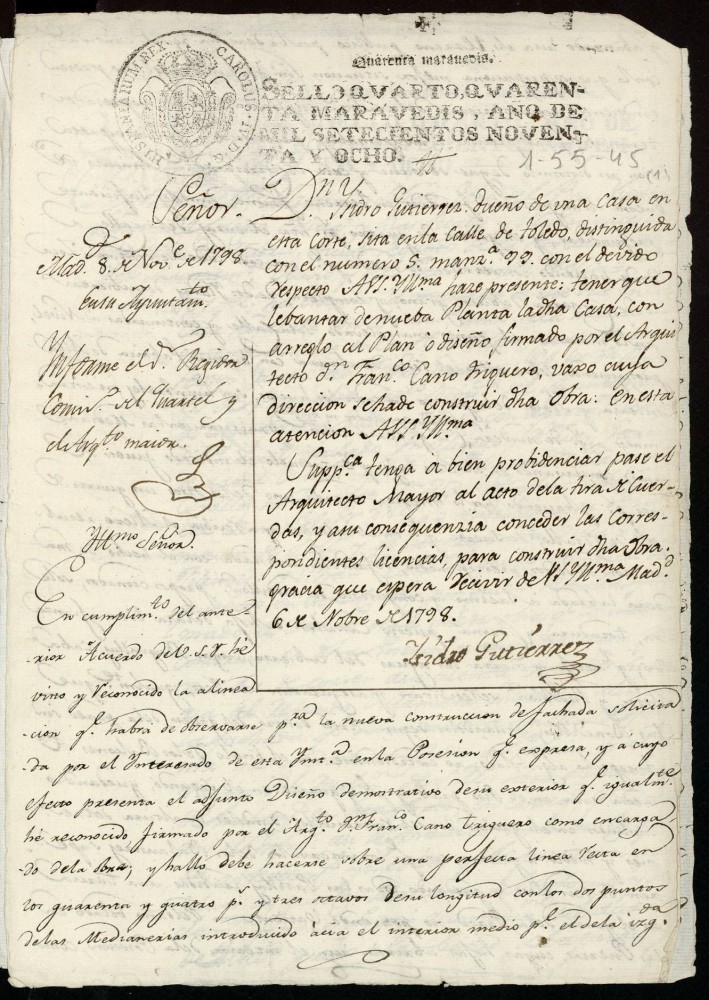 Quarenta maravedis.
SELLO QVARTO, QVAREN-
TA MARAVEDIS, AÑO DE
MIL SETECIENTOS NOVEN-
TA Y OCHO.
CAROLUS IV D. G. HISPANIARUM REX
1-55-45
(1)
Señor.
Dn. Isidro Gutierrez dueño de una Casa en
esta Corte, sita en la Calle de toledo, distinguida
con el numero 5. manza. 99. con el devido
respecto A VS. Yllma haze presente: tener que
lebantar de nueba Planta la dha Casa, con
arreglo al Plan ò diseño firmado por el Arqui
tecto dn. Franco. Cano triguero, vaxo cuya
direccion se hade construir dha Obra: en esta
atencion A VS. Yllma
Suppca. tenga à bien probidenciar pase el
Arquitecto Mayor al acto dela tira de Cuer-
das, y asu consequenzia conceder las Corres-
pondientes licencias, para construir dha Obra.
gracia que espera recivir de VS. Yllma. Madd.
6 de Nobre de 1798.
Isidro Gutiérrez
Mad. 8. de Nove. de 1798.
En su Ayuntamto.
Ynforme el sr. Regidor
Comiso. del Quartel y
el Arqto. maior.
Yllmo. Señor.
En cumplimto. del ante-
rior Acuerdo de V.S.Y. hé
visto y reconocido la alinea
cion qe. habrá de observarse pra. la nueva construccion de fachada solicita
-da por el Ynteresado de esta Ynsta. en la Posesion qe. expresa, y á cuyo
efecto presenta el adjunto Diseño demostrativo de su exterior qe. igualmte.
hé reconocido firmado por el Arqto. Dn. Franco. Cano triguero como encarga
do dela Obra; y hallo debe hacerse sobre una perfecta linea recta en
los quarenta y quatro ps. y tres octavos de su longitud con los dos puntos
delas Medianerias introducido ácia el interior medio pe. el dela izqda.